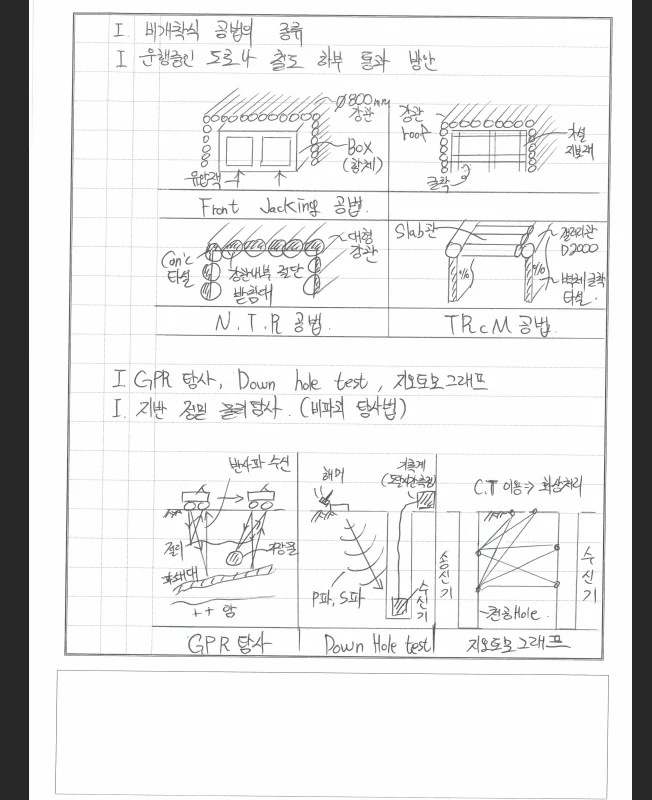 I. 비개착식 공법의 종류
I 운행중인 도로나 철도 하부 통과 방안
Ø800mm
강관
BOX
(함체)
유압잭
Front Jacking 공법.
강관
roof
가설
지보재
굴착
대형
강관
Con'c
타설
강관내부 절단
받침대
N.T.R 공법.
Slab판
갤러리관
D2000
벽체 굴착
타설.
TRcM 공법.
I GPR 탐사, Down hole test, 지오토모그래프
I. 지반 정밀 물리탐사. (비파괴 탐사법)
반사파 수신
절리
지장물
파쇄대
++ 암
GPR 탐사
해머
기록계
(도달시간측정)
P파, S파
수신기
Down Hole test
C.T 이용 ⇒ 화상처리
송신기
수신기
천공Hole.
지오토모그래프